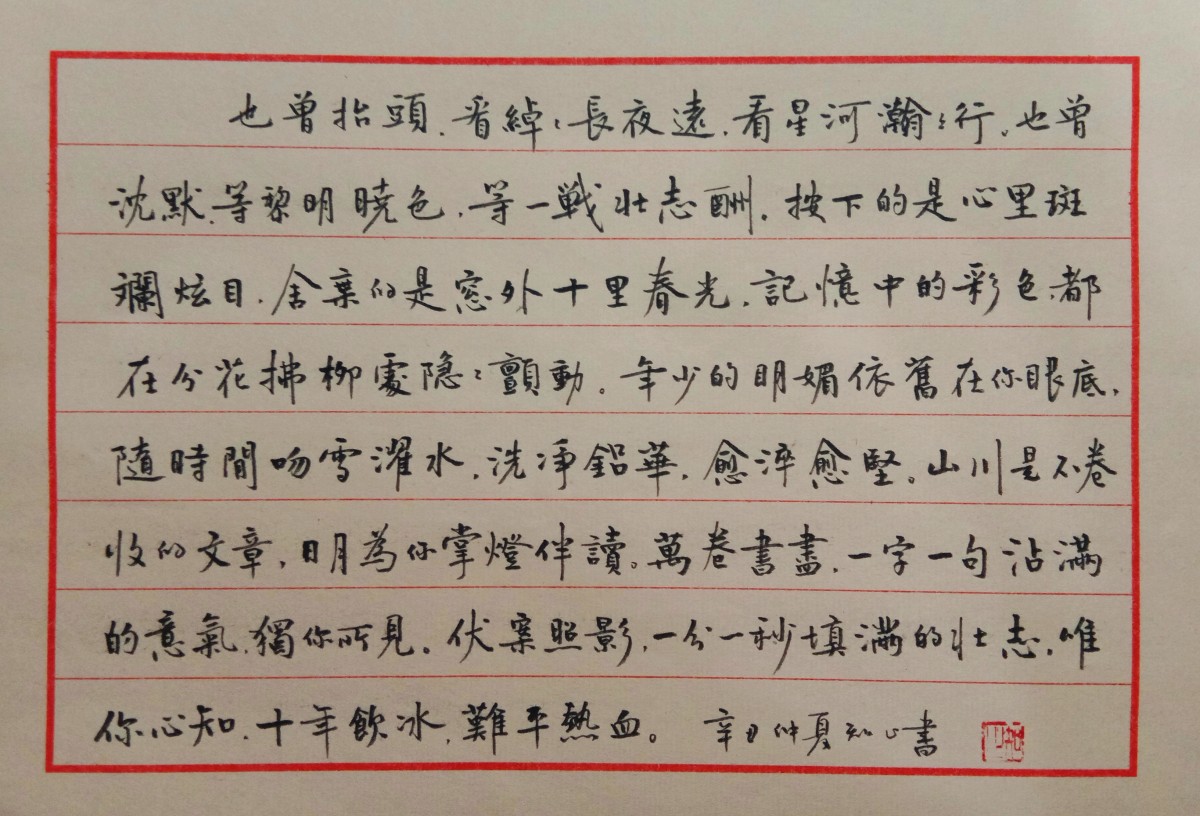 也曾抬頭，看綽〻長夜遠，看星河瀚〻行。也曾
沈默，等黎明曉色，等一戰壯志酬。按下的是心里斑
斕炫目，舍棄的是窓外十里春光，記憶中的彩色，都
在分花拂柳處隐〻顫動。年少的明媚依舊在你眼底，
隨時間吻雪濯水，洗淨鉛華，愈淬愈堅。山川是不卷
收的文章，日月為你掌燈伴讀。萬卷書盡，一字一句沾滿
的意氣，獨你所見。伏案照影，一分一秒填滿的壯志，唯
你心知，十年飲冰，難平熱血。 辛丑仲夏知心書